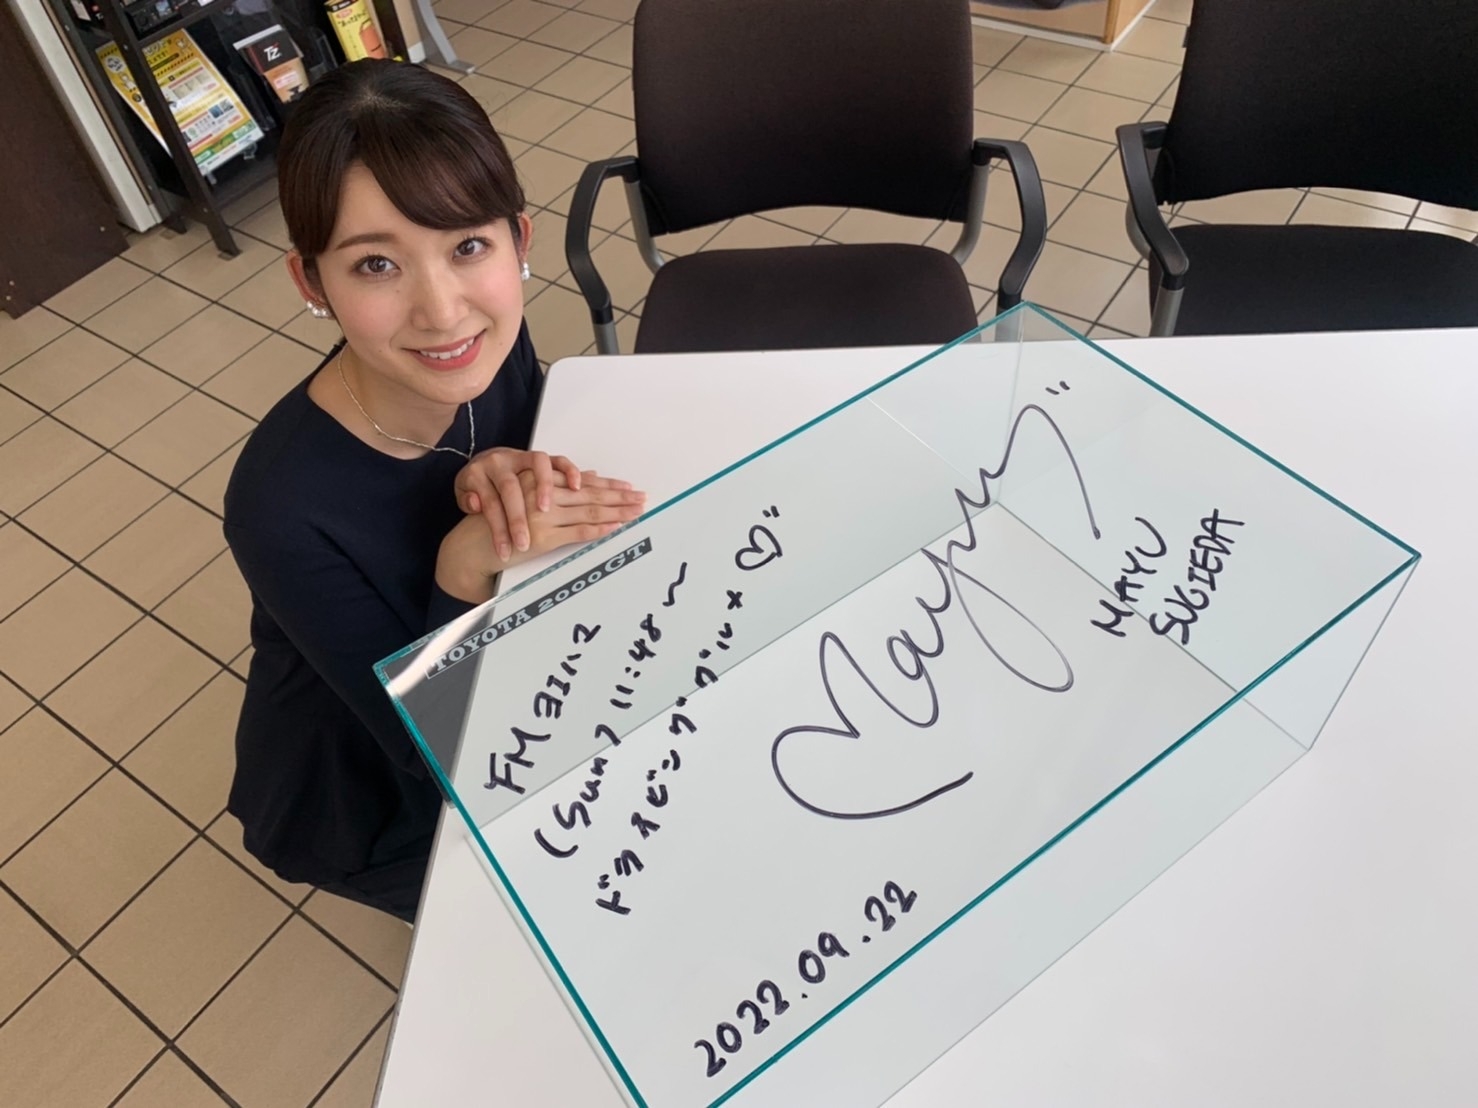 TOYOTA 2000GT
FMヨコハマ
(Sun) 11:48〜
ドライビンググルメ♡"
Mayu"
MAYU
SUGIEDA
2022.09.22
Tz